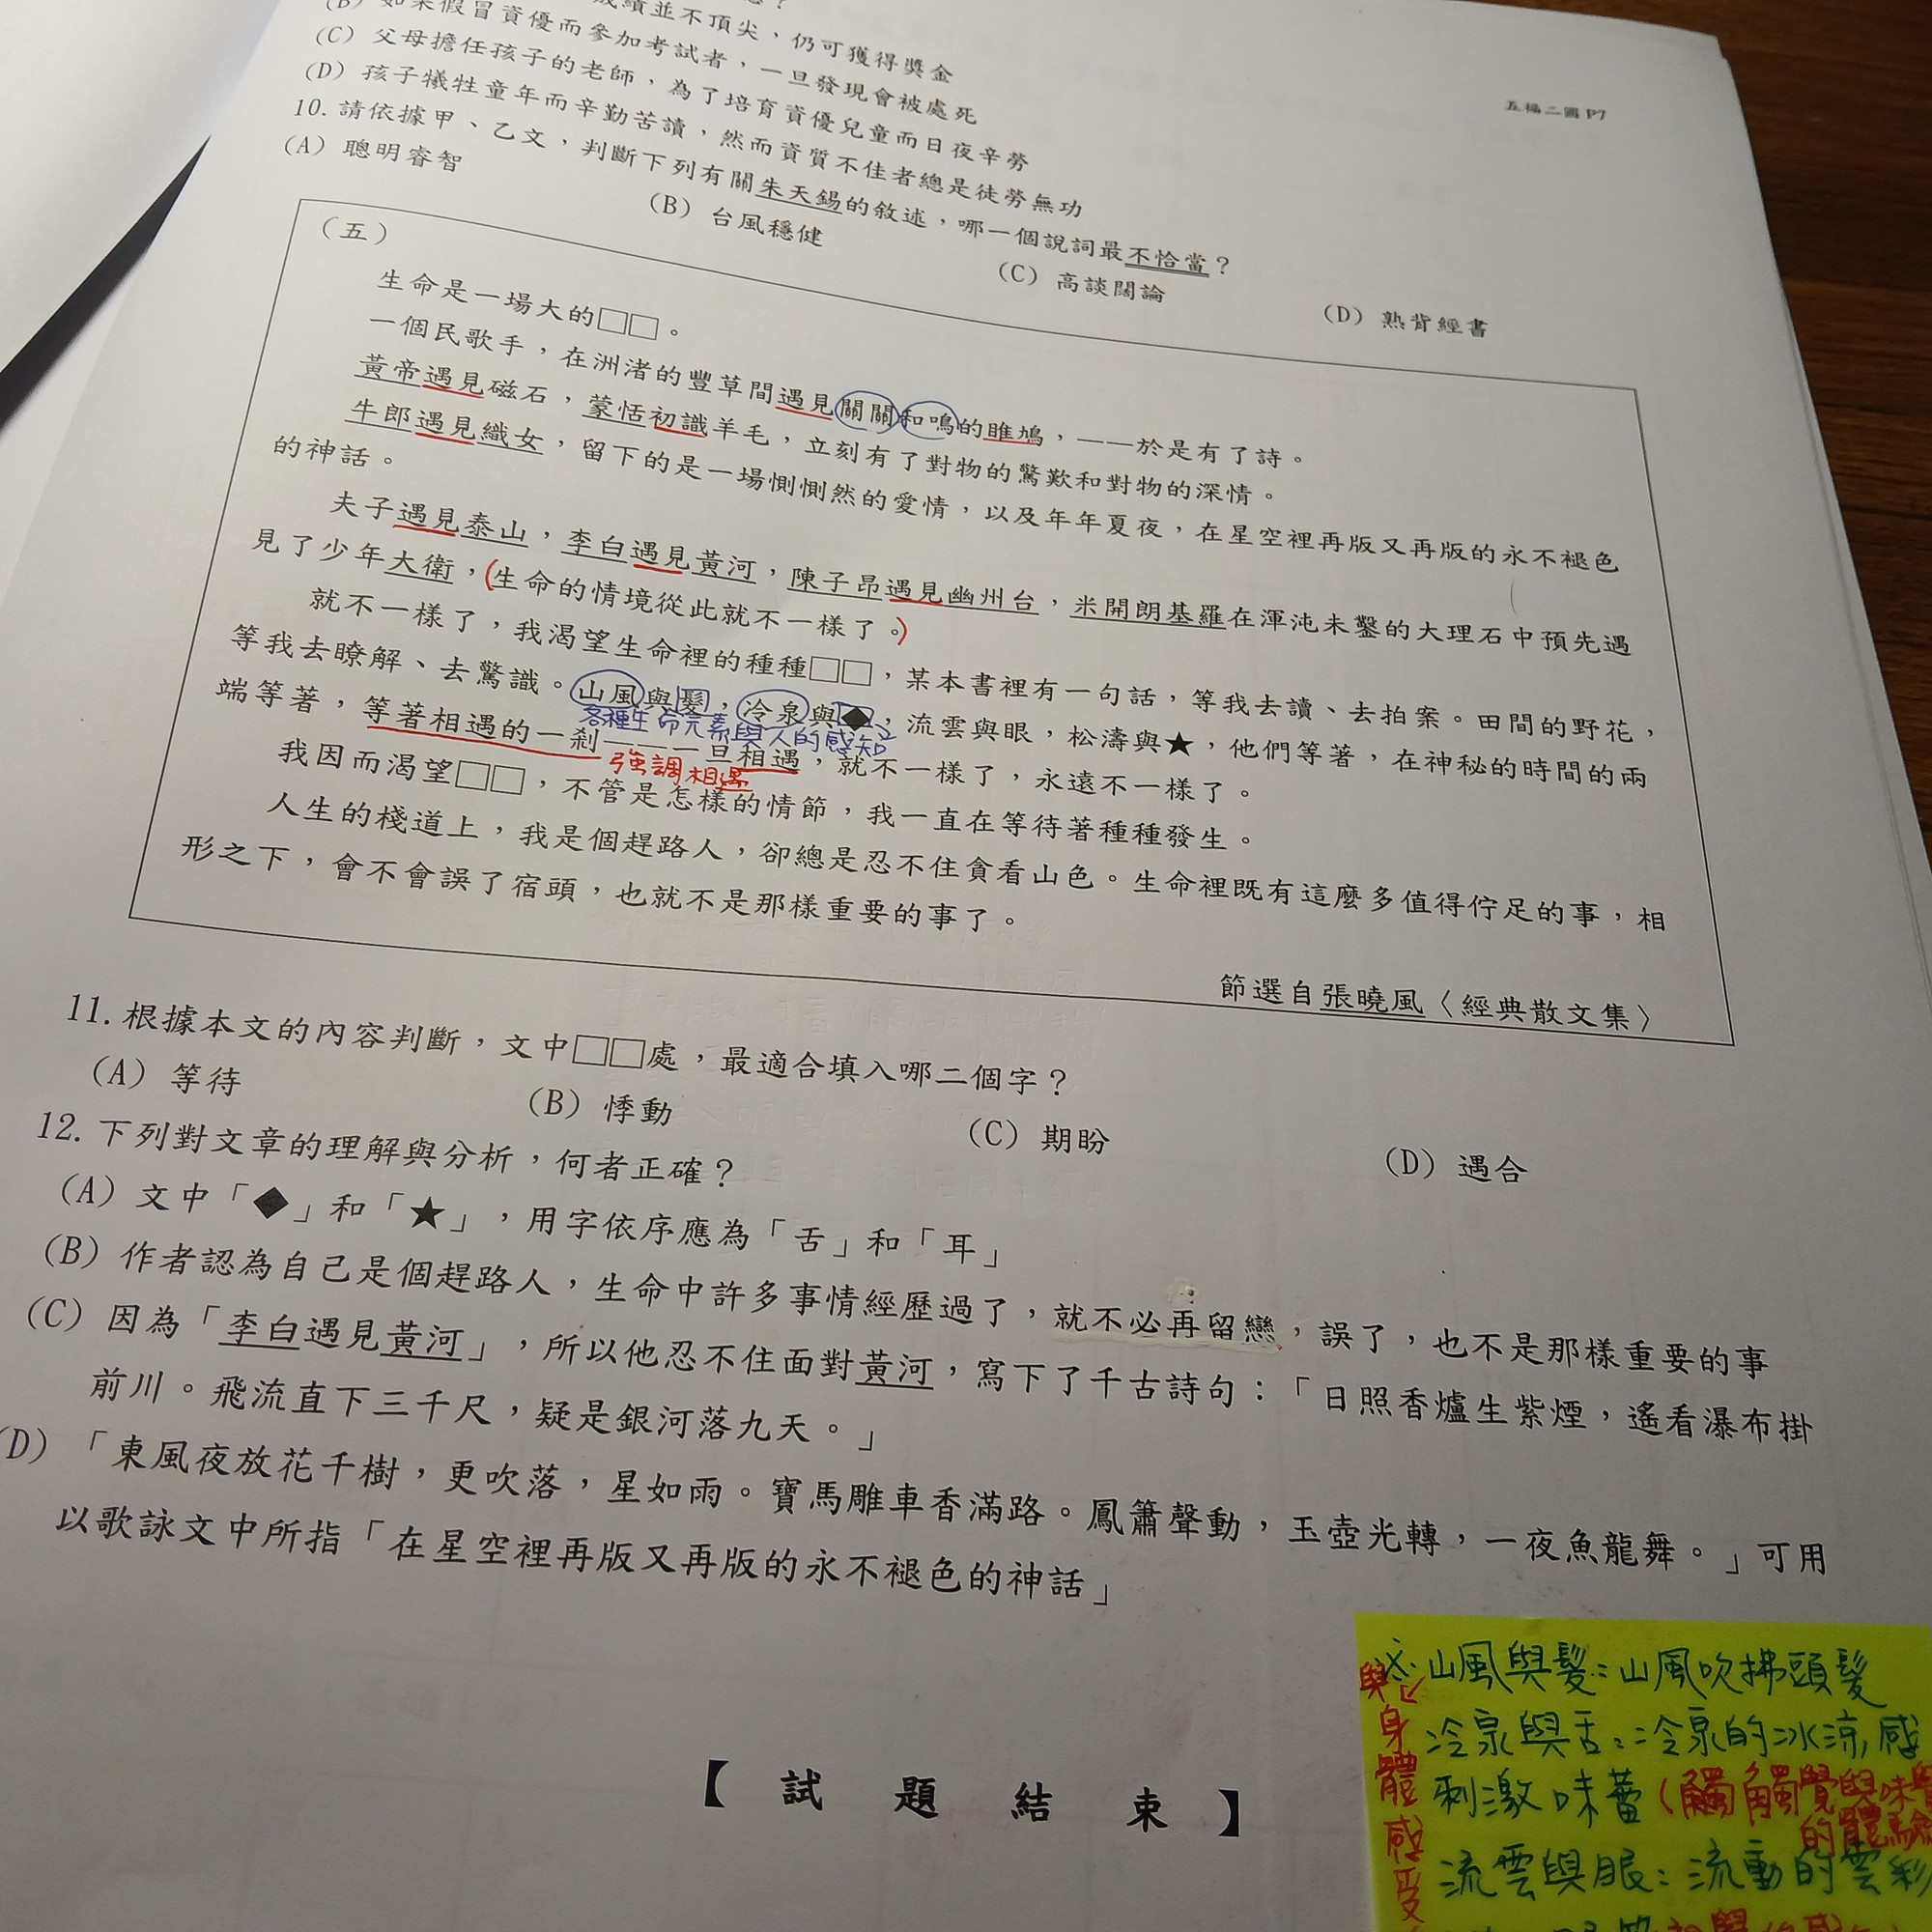 成績並不頂尖，仍可獲得獎金
(B) 如果假冒資優而參加考試者，一旦發現會被處死
(C) 父母擔任孩子的老師，為了培育資優兒童而日夜辛勞
(D) 孩子犧牲童年而辛勤苦讀，然而資質不佳者總是徒勞無功
五福二國 P7
10. 請依據甲、乙文，判斷下列有關朱天錫的敘述，哪一個說詞最不恰當？
(A) 聰明睿智 (B) 台風穩健 (C) 高談闊論 (D) 熟背經書
（五）
生命是一場大的□□。
一個民歌手，在洲渚的豐草間遇見關關和鳴的雎鳩，——於是有了詩。
黃帝遇見磁石，蒙恬初識羊毛，立刻有了對物的驚歎和對物的深情。
牛郎遇見織女，留下的是一場惻惻然的愛情，以及年年夏夜，在星空裡再版又再版的永不褪色
的神話。
夫子遇見泰山，李白遇見黃河，陳子昂遇見幽州台，米開朗基羅在渾沌未鑿的大理石中預先遇
見了少年大衛，(生命的情境從此就不一樣了。)
就不一樣了，我渴望生命裡的種種□□，某本書裡有一句話，等我去讀、去拍案。田間的野花，
等我去瞭解、去驚識。山風與髮，冷泉與◆，流雲與眼，松濤與★，他們等著，在神秘的時間的兩
各種生命元素與人的感知
端等著，等著相遇的一剎——一旦相遇，就不一樣了，永遠不一樣了。
強調相遇
我因而渴望□□，不管是怎樣的情節，我一直在等待著種種發生。
人生的棧道上，我是個趕路人，卻總是忍不住貪看山色。生命裡既有這麼多值得佇足的事，相
形之下，會不會誤了宿頭，也就不是那樣重要的事了。
節選自張曉風〈經典散文集〉
11. 根據本文的內容判斷，文中□□處，最適合填入哪二個字？
(A) 等待 (B) 悸動 (C) 期盼 (D) 遇合
12. 下列對文章的理解與分析，何者正確？
(A) 文中「◆」和「★」，用字依序應為「舌」和「耳」
(B) 作者認為自己是個趕路人，生命中許多事情經歷過了，就不必再留戀，誤了，也不是那樣重要的事
(C) 因為「李白遇見黃河」，所以他忍不住面對黃河，寫下了千古詩句：「日照香爐生紫煙，遙看瀑布掛
前川。飛流直下三千尺，疑是銀河落九天。」
(D) 「東風夜放花千樹，更吹落，星如雨。寶馬雕車香滿路。鳳簫聲動，玉壺光轉，一夜魚龍舞。」可用
以歌詠文中所指「在星空裡再版又再版的永不褪色的神話」
【試題結束】
山風與髮：山風吹拂頭髮
冷泉與舌：冷泉的冰涼感
刺激味蕾(觸覺與味覺
的體驗
流雲與眼：流動的雲彩
與身體感受